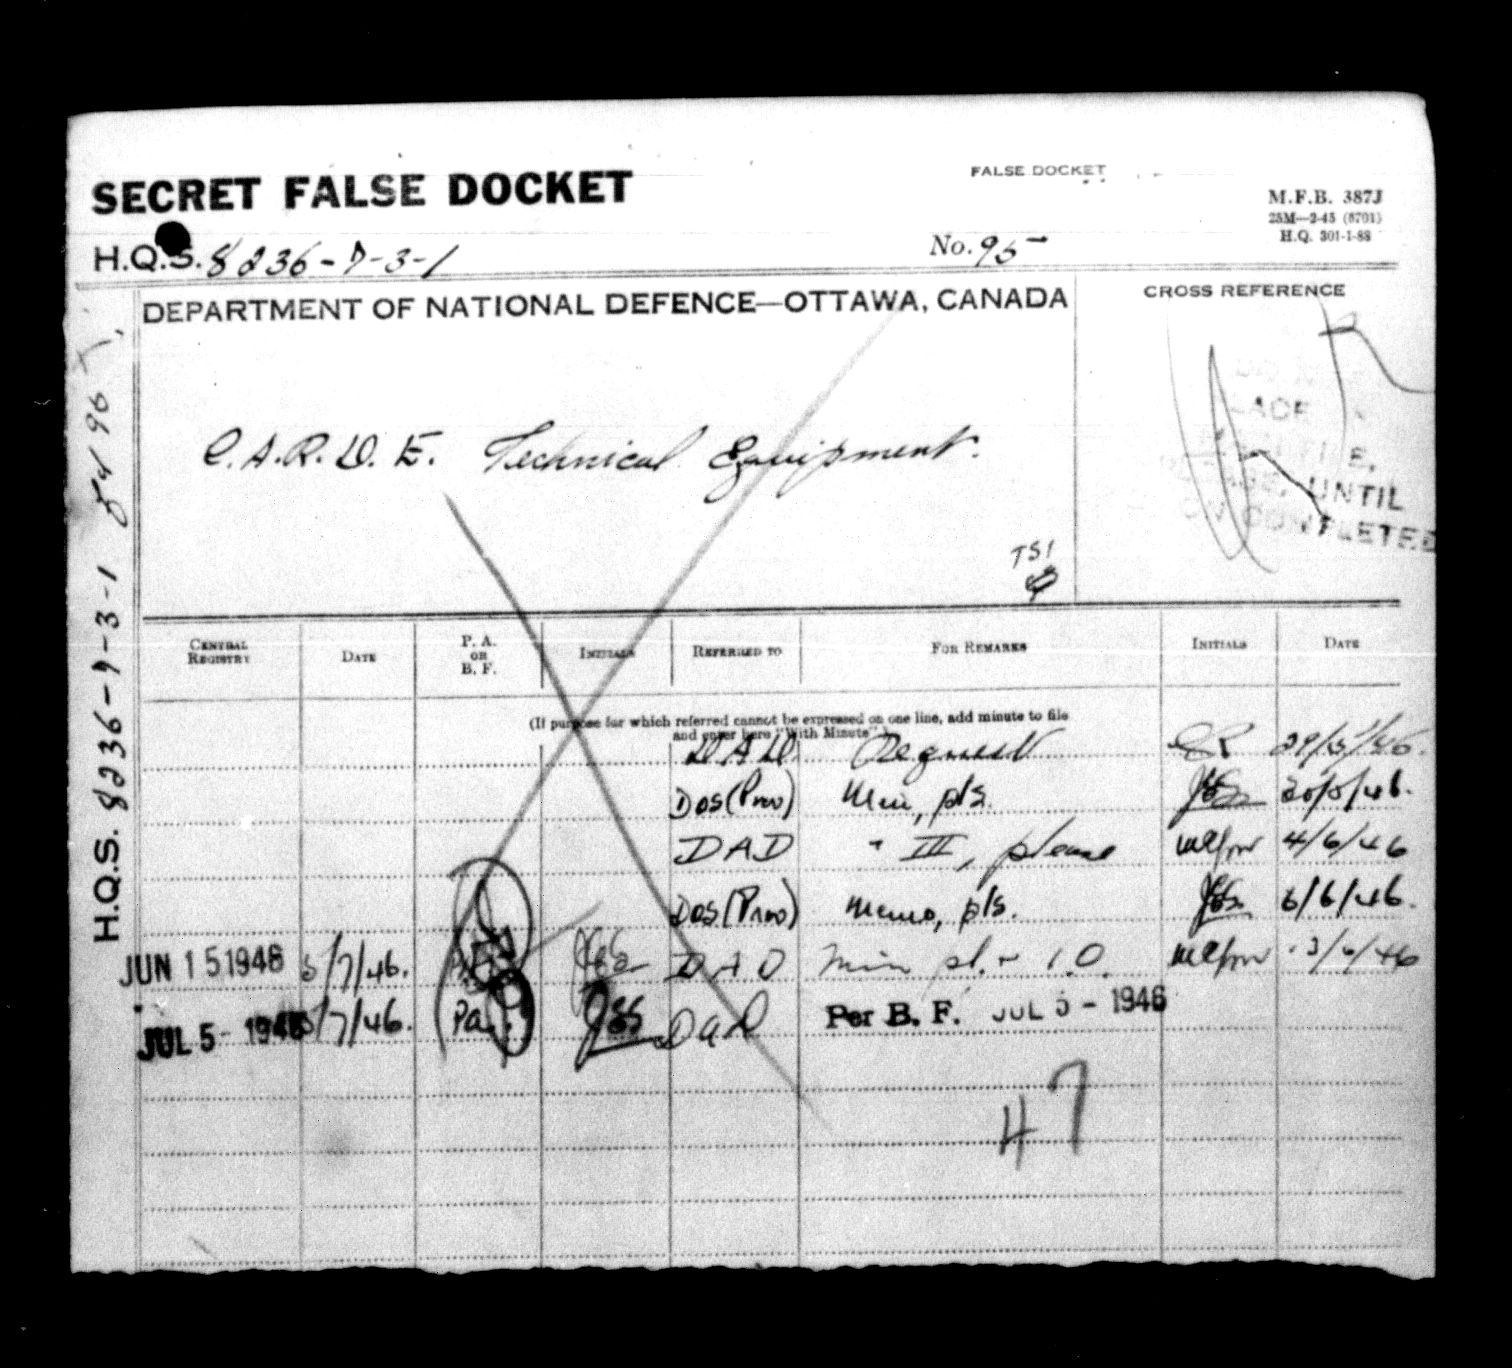 SECRET FALSE DOCKET
FALSE DOCKET
M.F.B. 387J
25M—2-45 (8701)
H.Q. 301-1-88
H.Q.S. 8236-9-3-1
No. 95
DEPARTMENT OF NATIONAL DEFENCE—OTTAWA, CANADA
CROSS REFERENCE
C.A.R.D.E. Technical Equipment.
FILE,
UNTIL
COMPLETED
TS1
H.Q.S. 8236-9-3-1
CENTRAL REGISTRY
DATE
P. A. OR B. F.
INITIALS
REFERRED TO
FOR REMARKS
INITIALS
DATE
(If purpose for which referred cannot be expressed on one line, add minute to file
and enter here "With Minute".)
D.A.D. Request 29/5/46.
DOS(Prov) Min, pls. 30/5/46.
DAD " III, please 4/6/46
DOS(Prov) Memo, pls. 6/6/46.
JUN 15 1946 5/7/46. DAD Min pl. 1.0. /6/46
JUL 5 - 1946 5/7/46. Pa. DAD Per B. F. JUL 5 - 1946
47